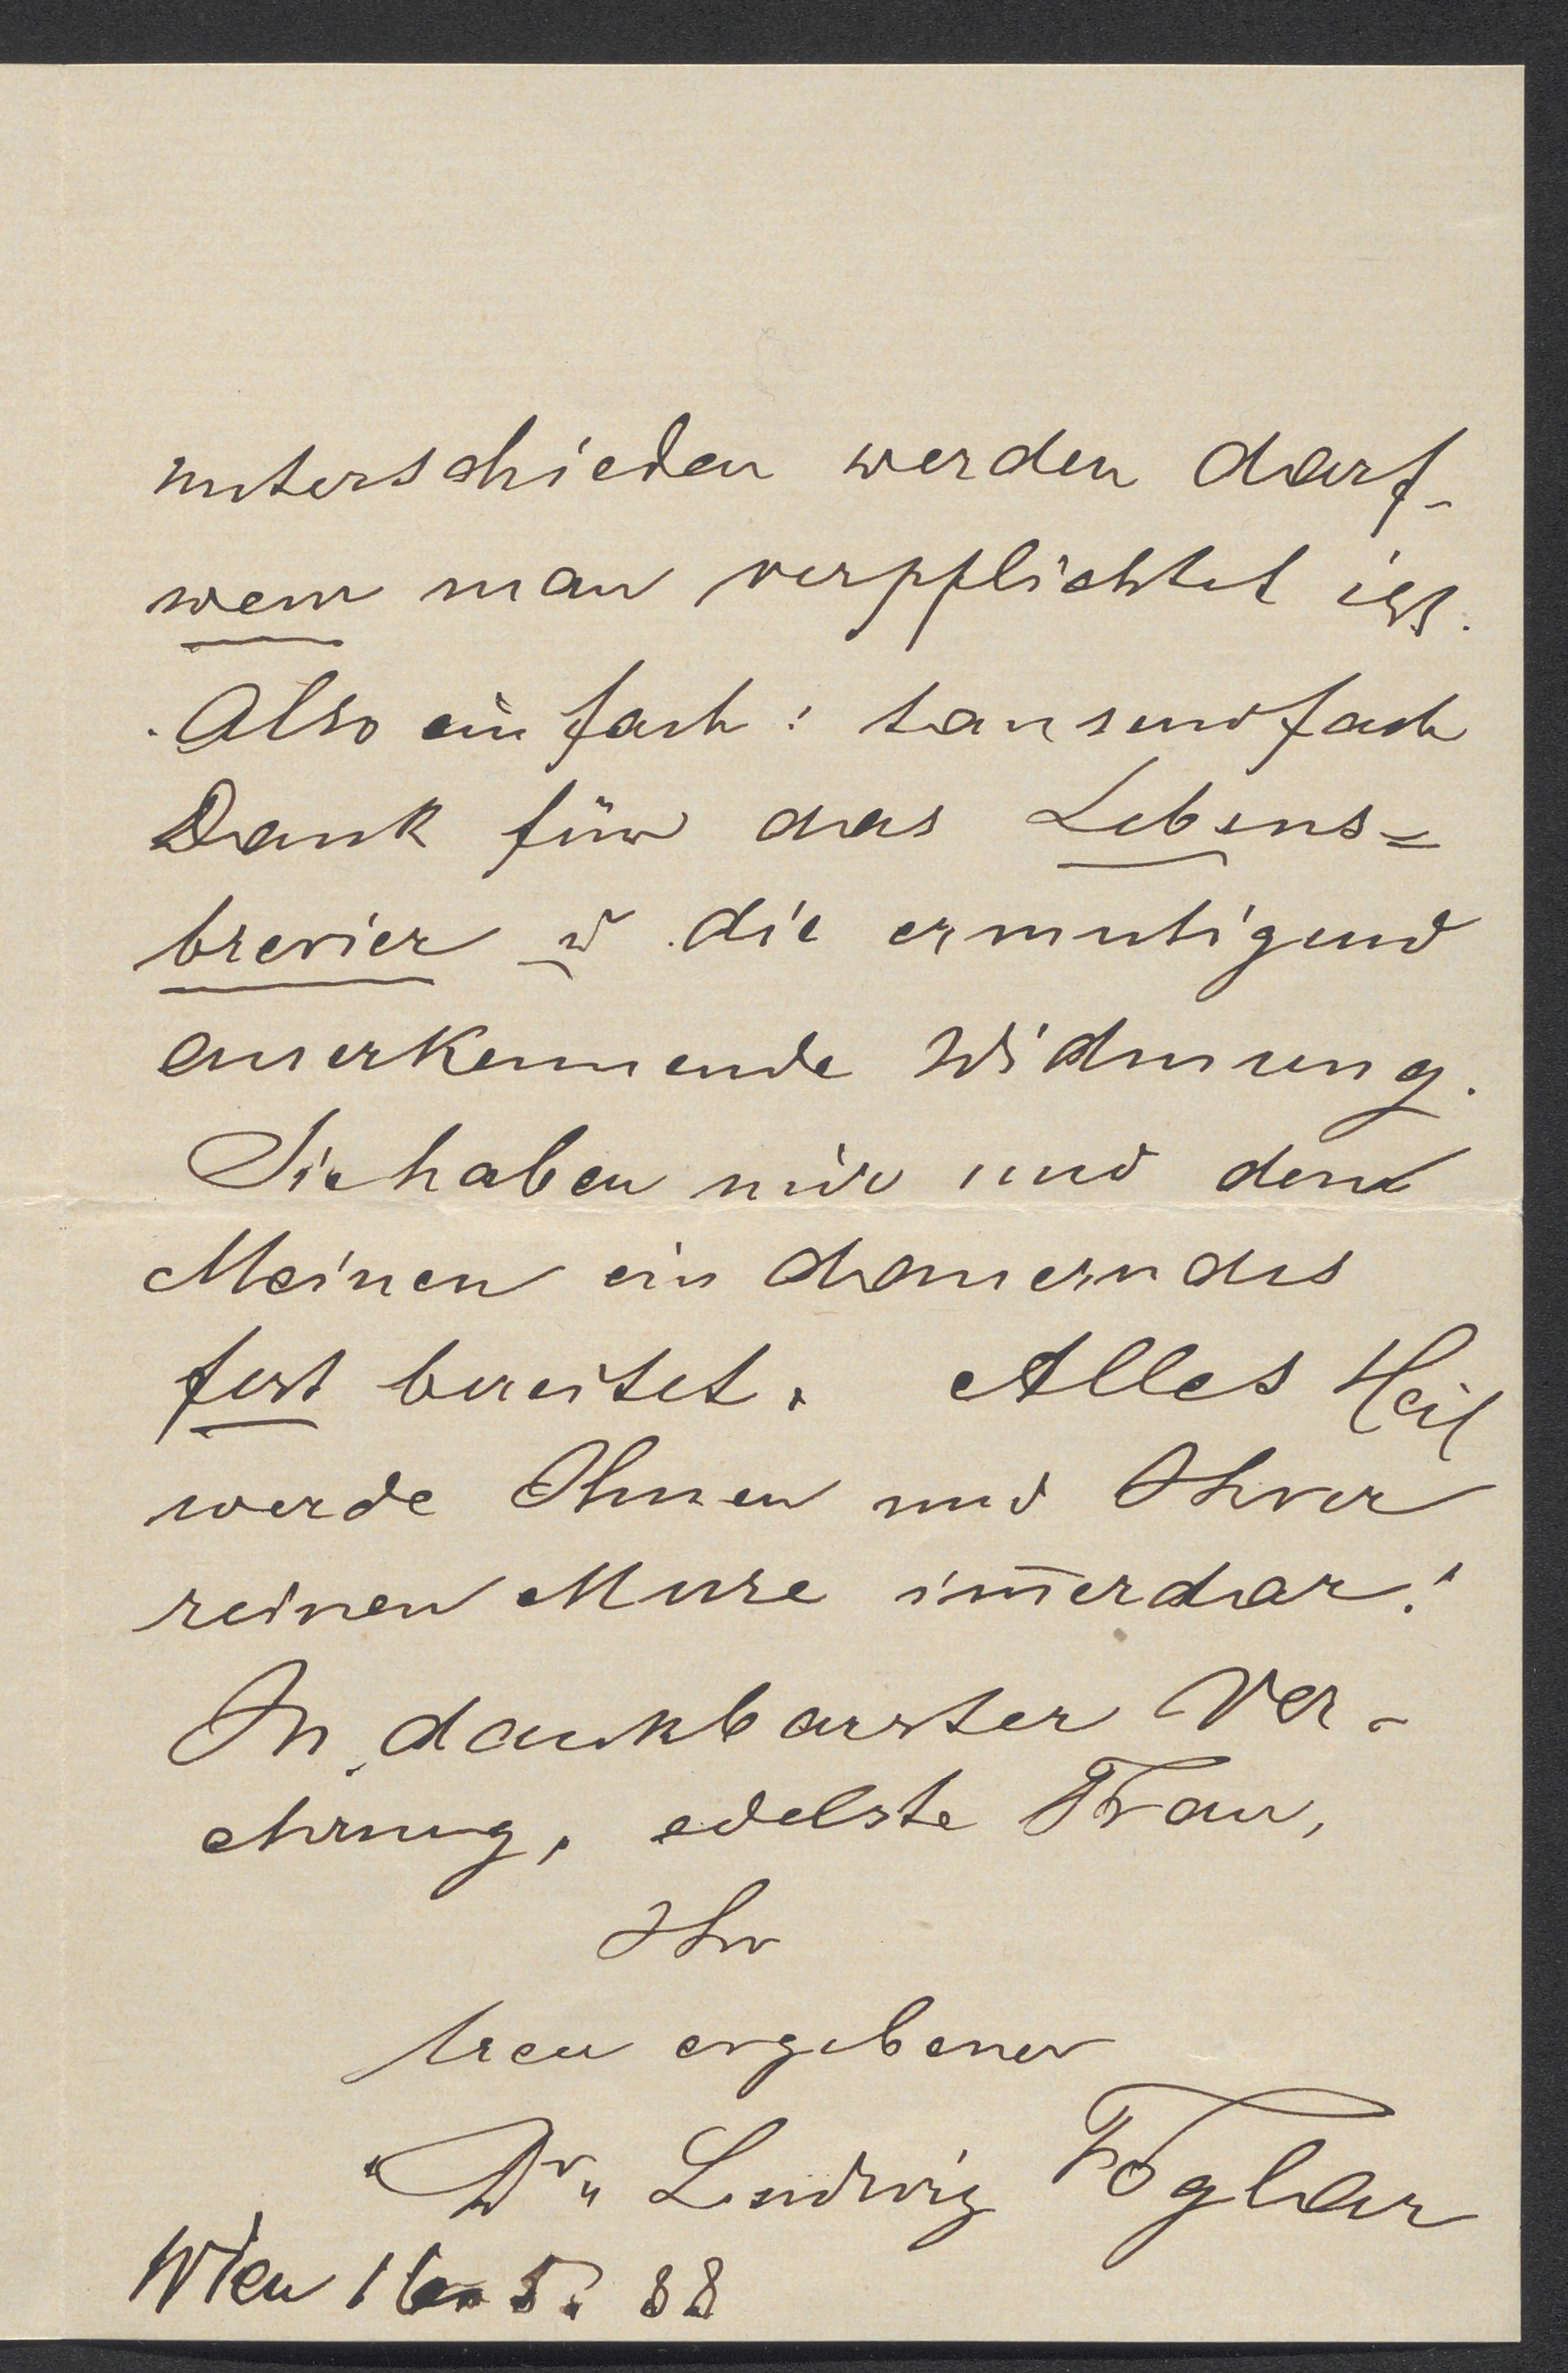 unterschieden werden darf-
wem man verpflichtet ist.
Also einfach: tausendfach
Dank für das Lebens=
brevier u die ermutigend
anerkennende Widmung.
Sie haben mir und den
Meinen ein dauerndes
Fest bereitet. Alles Heil
werde Ihnen und Ihrer
reinen Muse im̄erdar!
In dankbarster Ver-
ehrung, edelste Frau,
Ihr
treu ergebener
Dr. Ludwig Foglar
Wien 16. 5. 88